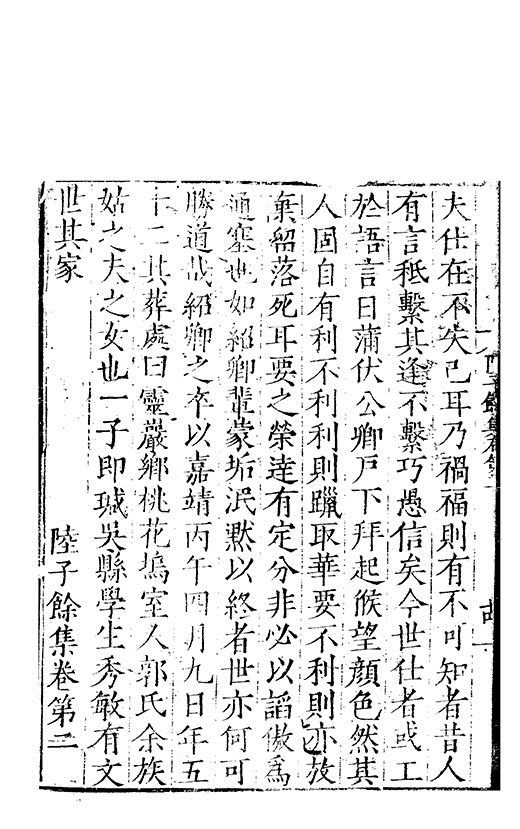 夫仕在不失己耳乃禍福則有不可知者昔人
有言秪繫其逢不繫巧愚信矣今世仕者或工
於語言日蒲伏公卿戸下拜起候望顔色然其
人固自有利不利利則躐取華要不利則亦放
棄留落死耳要之榮逹有定分非必以謟傲爲
通塞也如紹卿輩蒙垢泯黙以終者世亦何可
勝道哉紹卿之卒以嘉靖丙午四月九日年五
十二其葬處曰靈巖鄉桃花塢室人郭氏余族
姑之夫之女也一子即瑊吳縣學生秀敏有文
世其家
陸子餘集卷第二